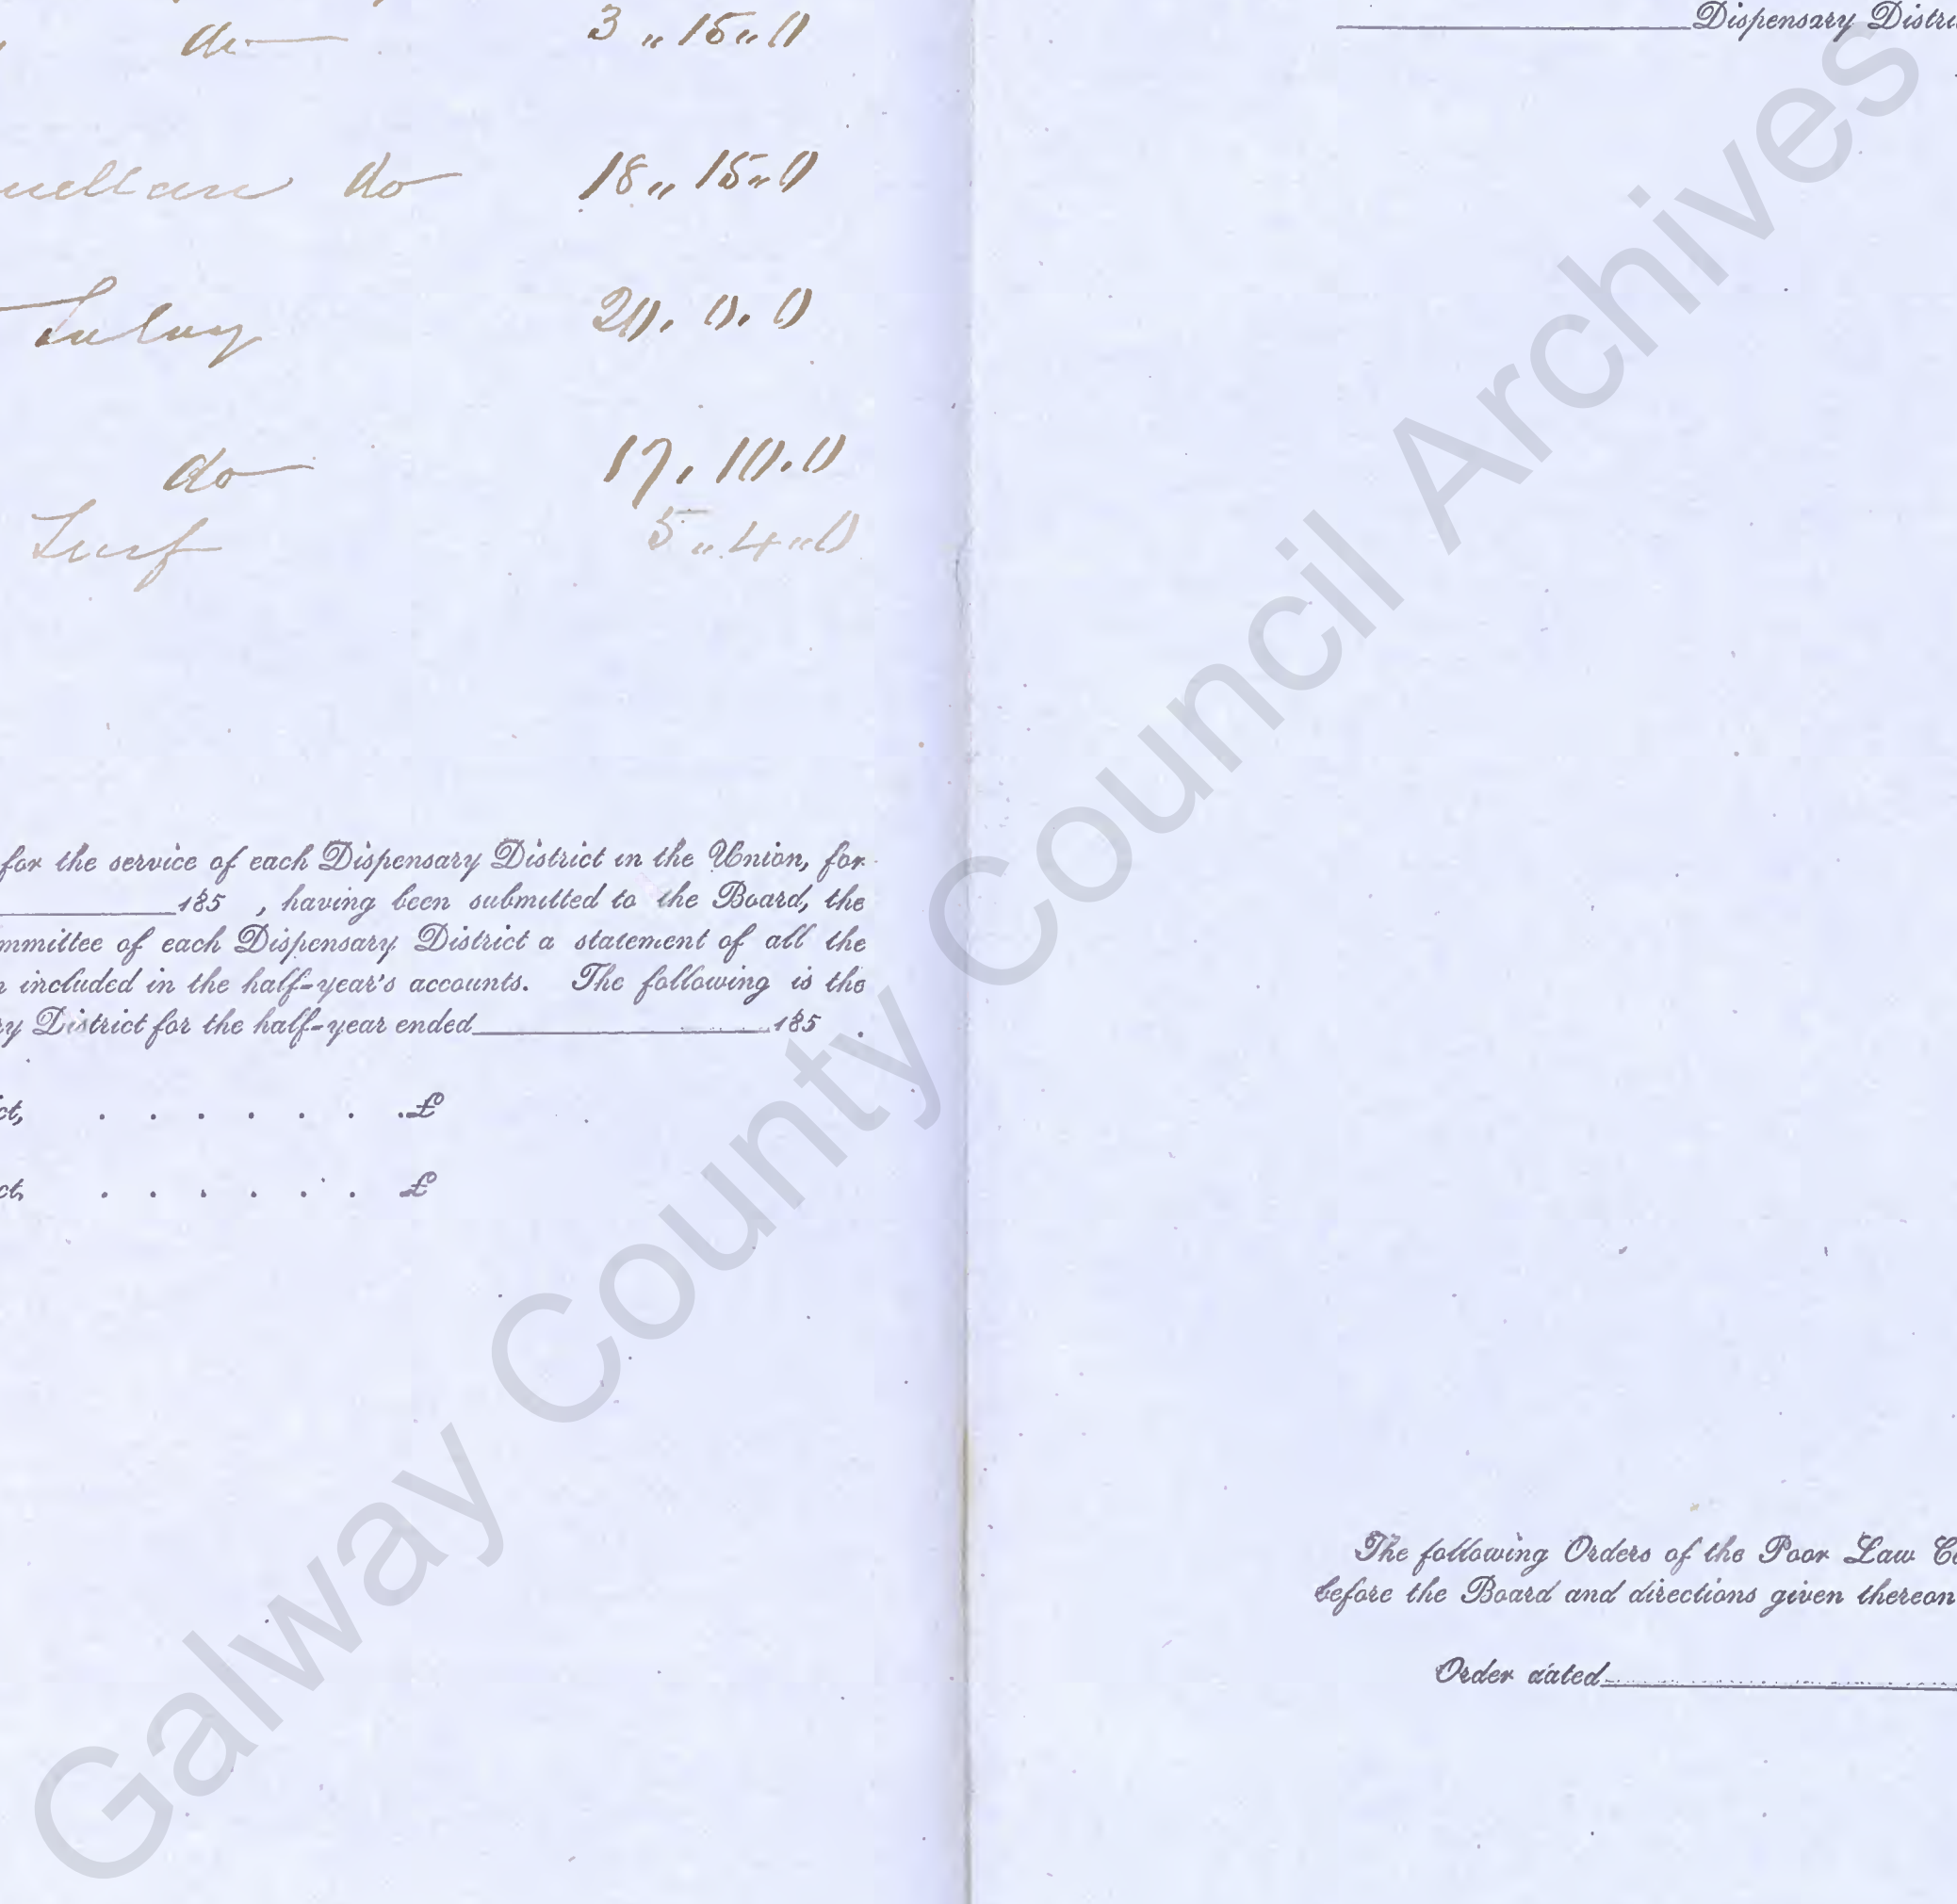 do 3 „ 15 „ 0
do 18 „ 15 „ 0
Salary 20. 0. 0
do 17. 10. 0
Turf 5 „ 4 „ 0
for the service of each Dispensary District in the Union, for
185 , having been submitted to the Board, the
mmittee of each Dispensary District a statement of all the
n included in the half-year's accounts. The following is the
ry District for the half-year ended 185 .
ct, . . . . . . . £
ct, . . . . . . £
Dispensary Distri
The following Orders of the Poor Law Co
before the Board and directions given thereon
Order dated
Galway County Council Archives